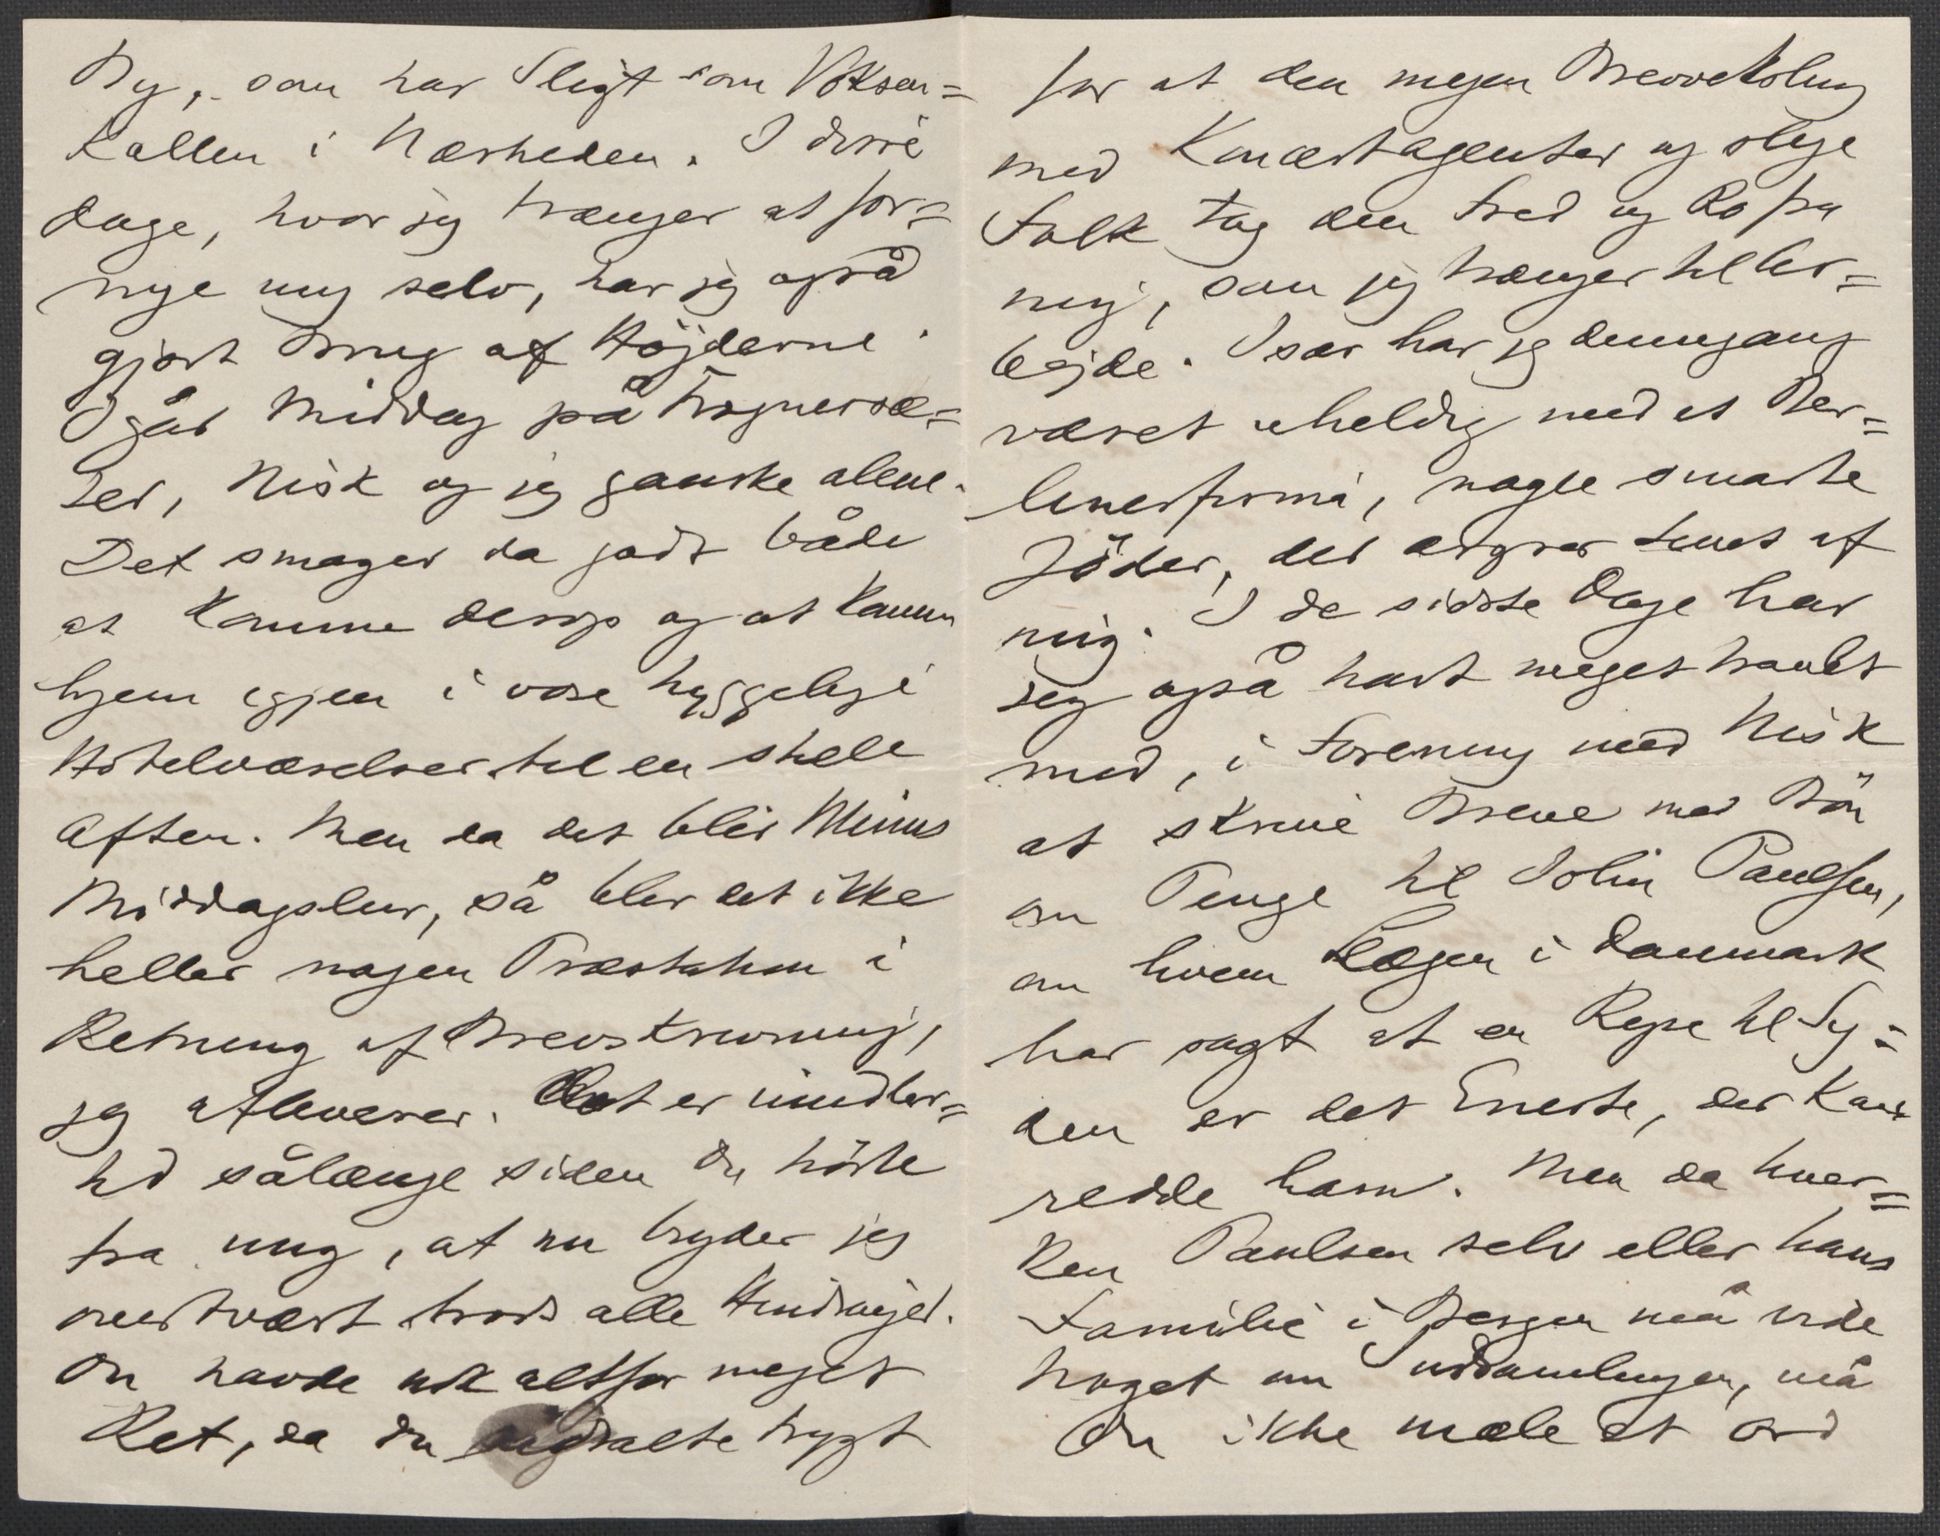 By, som har Sligt som Voksen=
kollen i Nærheden. I disse
Dage, hvor jeg trænger at for=
nye mig selv, har jeg også
gjort Brug af Höjderne.
Igår Middag på Frognersæ=
ter, Nisk og jeg ganske alene.
Det smager da godt både
at komme derop og at komme
hjem igjen i vore hyggelige
Hotelværelser til en stille
Aften. Men da det blir Minus
Middagslur, så blir det ikke
heller nogen Præstation i
Retning af Brevskrivning,
jeg afleverer. Det er imidler=
tid sålænge siden Du hörte
fra mig, at nu bryder jeg
overtvært trods alle Hindringer.
Du havde nok altfor meget
Ret, da Du udtalte Frygt
for at den megen Brevveksling
med Koncertagenter og slige
Folk tog den Fred og Ro fra
mig, som jeg trænger til Ar=
bejde. Især har jeg denngang
været uheldig med et Ber=
linerfirma, nogle smarte
Jöder, der ærgrer Livet af
mig. I de sidste Dage har
jeg også havt meget travlt
med, i Forening med Nisk
at skrive Breve med Bön
om Penge til John Paulsen,
om hvem Lægen i Danmark
har sagt at en Rejse til Sy=
den er det Eneste, der kan
redde ham. Men da hver=
ken Paulsen selv eller hans
Familie i Bergen må vide
Noget om Indsamlingen, må
Du ikke mæle et Ord